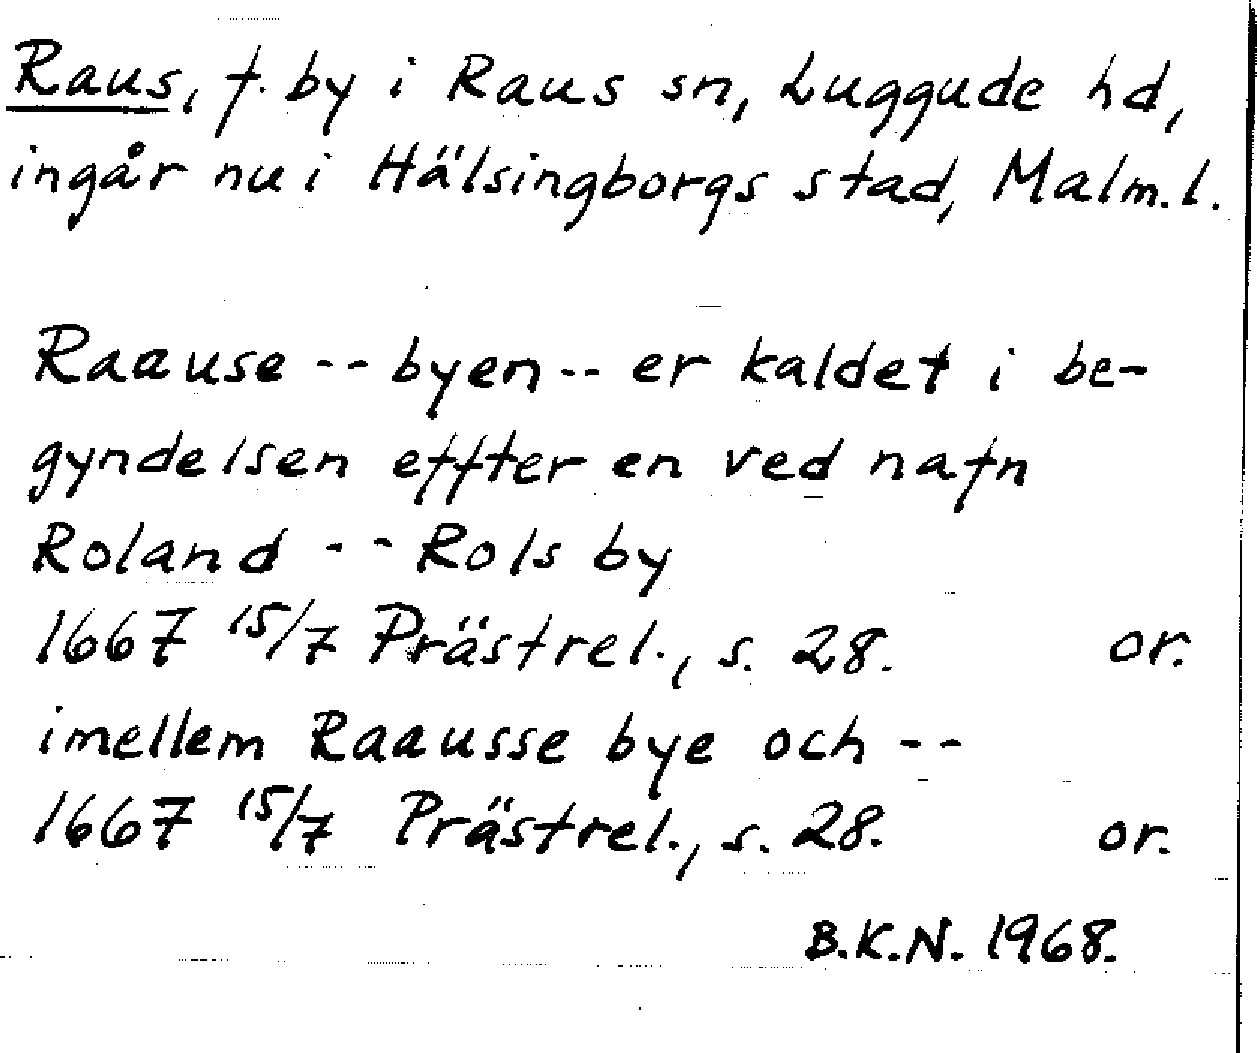 Raus, f. by i Raus sn, Luggude hd,
ingår nu i Hälsingborgs stad, Malm.l.
Raause -- byen -- er kaldet i be-
gyndelsen effter en ved nafn
Roland -- Rols by
1667 15/7 Prästrel., s. 28. or.
imellem Raausse bye och --
1667 15/7 Prästrel., s. 28. or.
B.K.N. 1968.